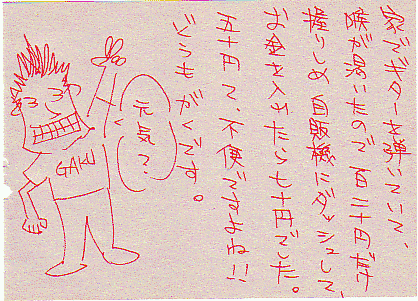 家でギターを弾いていて、
喉が渇いたので百二十円だけ
握りしめ自販機にダッシュして、
お金を入れたら七十円でした。
五十円て、不便ですよね!!
どうも がくです。
元気で?
GAKU